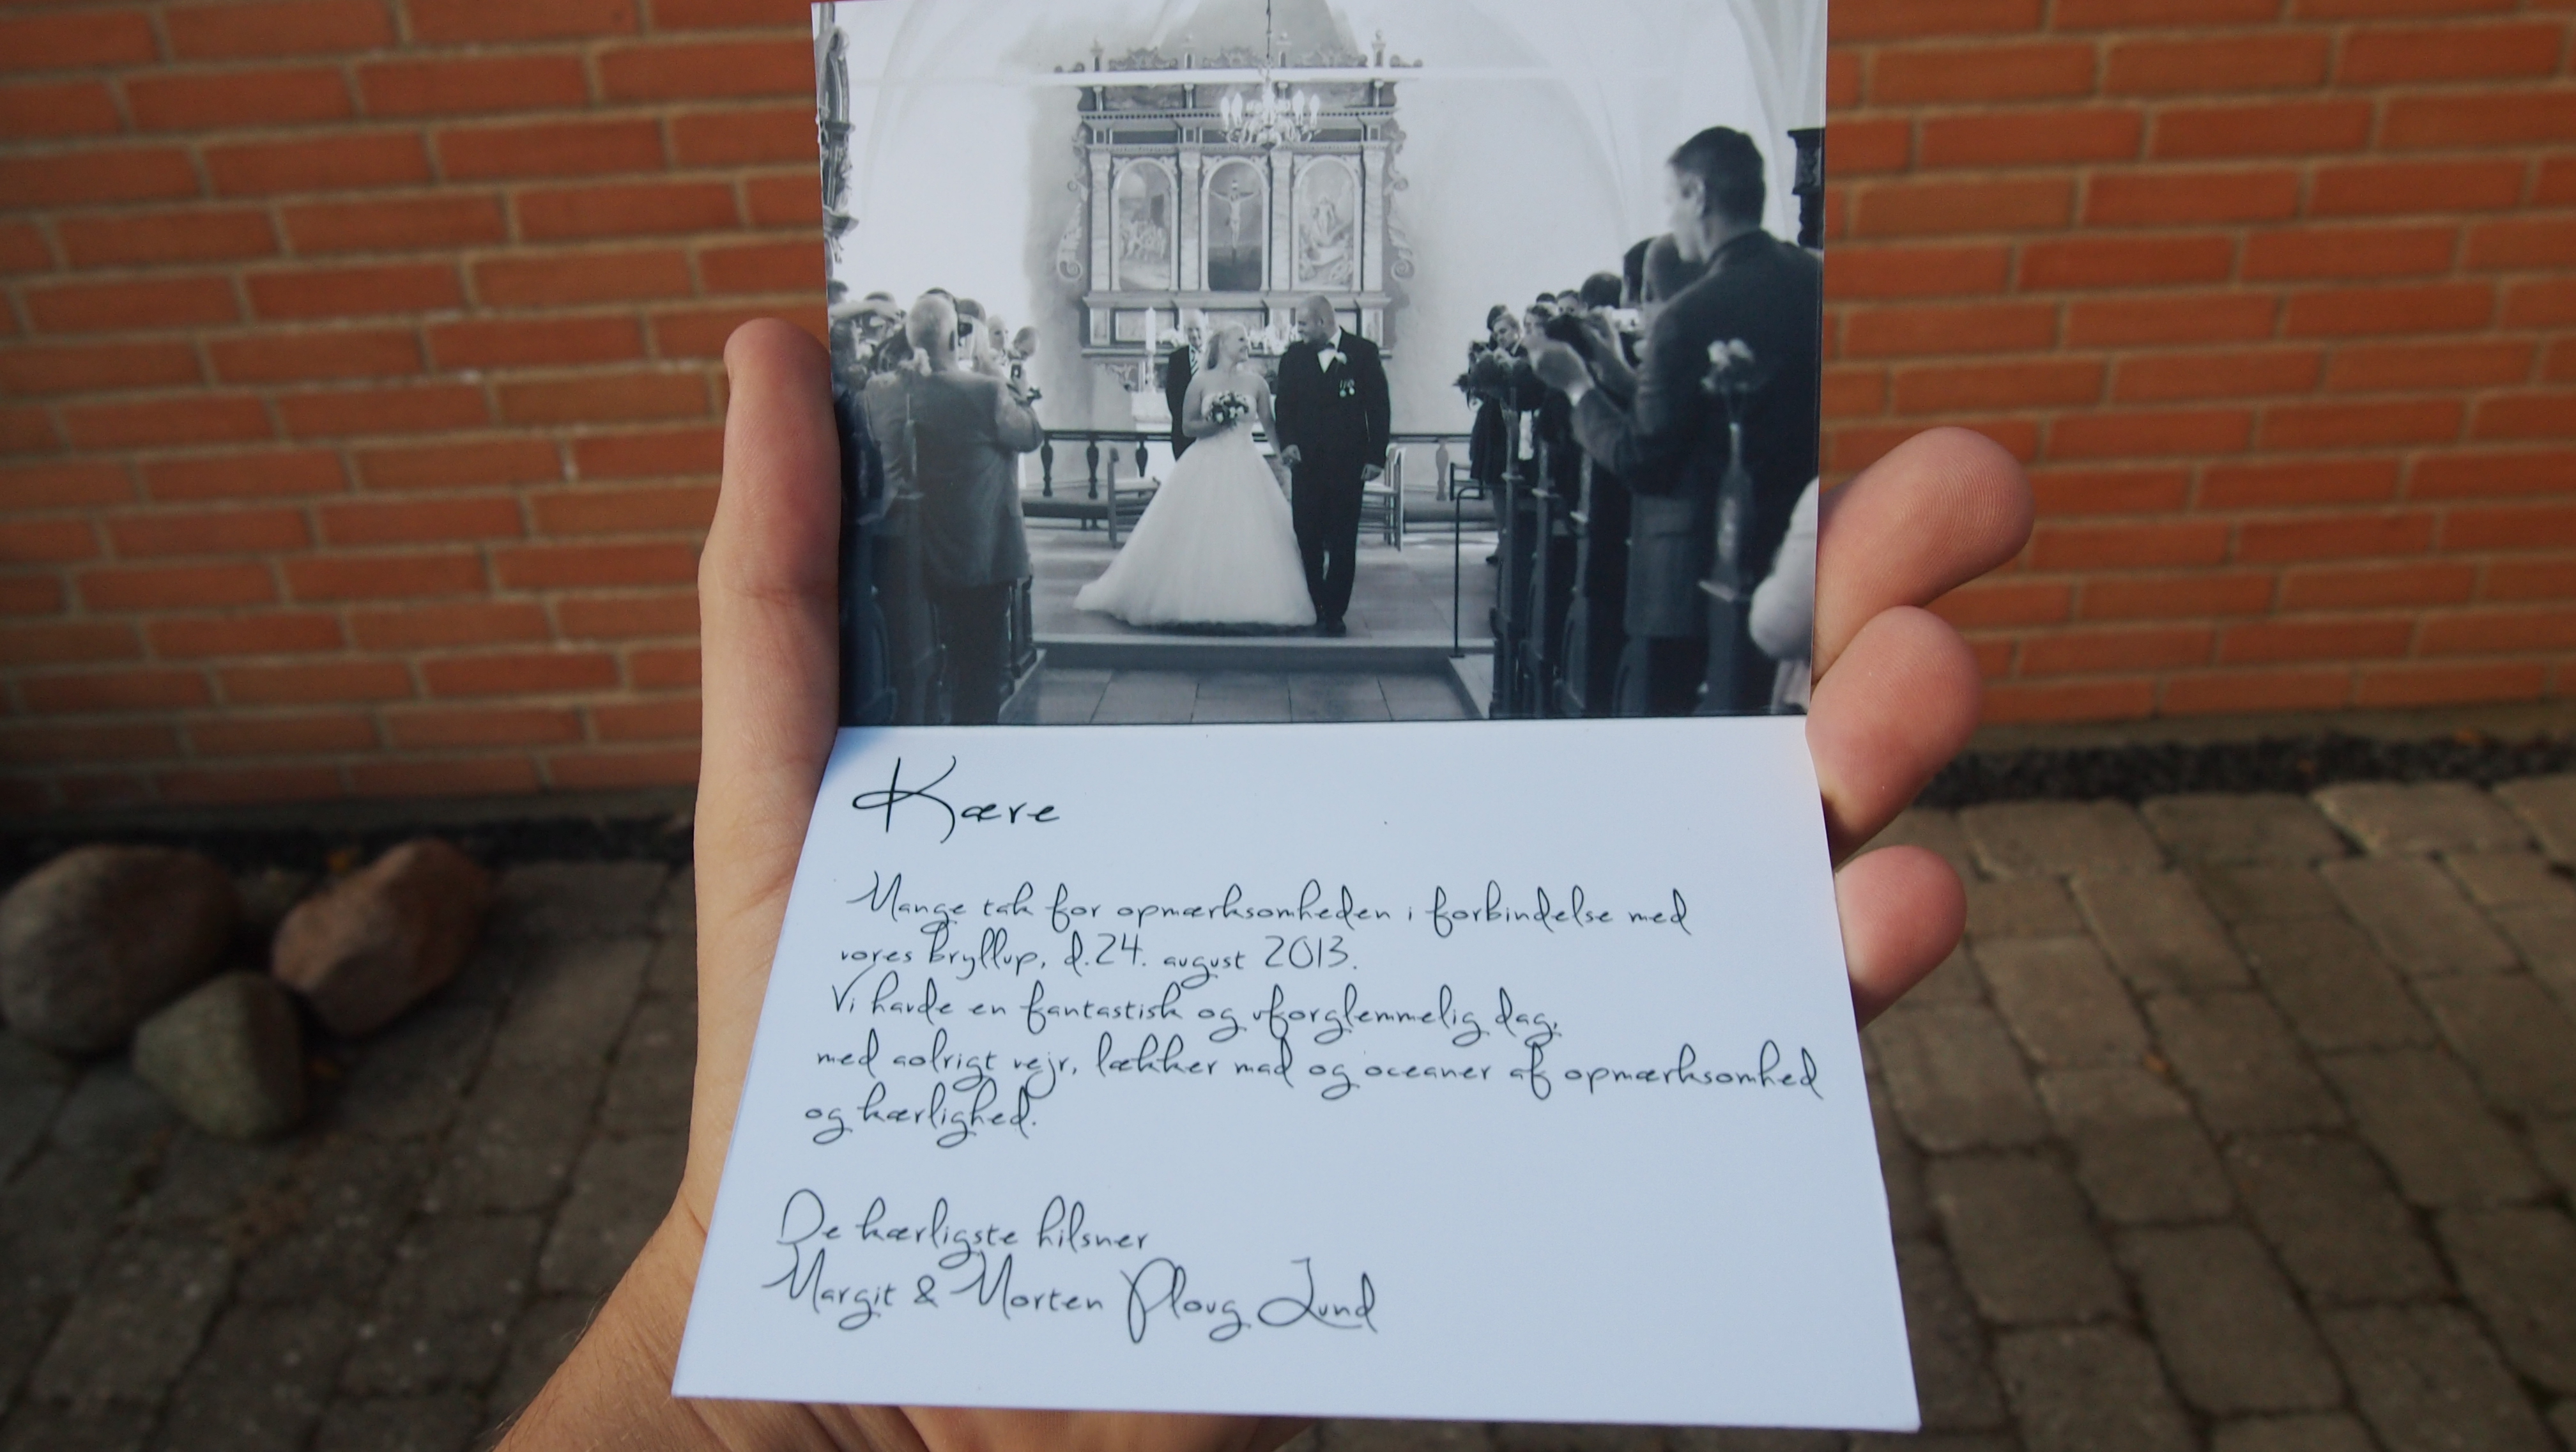 Kære
Mange tak for opmærksomheden i forbindelse med
vores bryllup, d.24. august 2013.
Vi havde en fantastisk og uforglemmelig dag,
med solrigt vejr, lækker mad og oceaner af opmærksomhed
og kærlighed.
De kærligste hilsner
Margit & Morten Ploug Lund